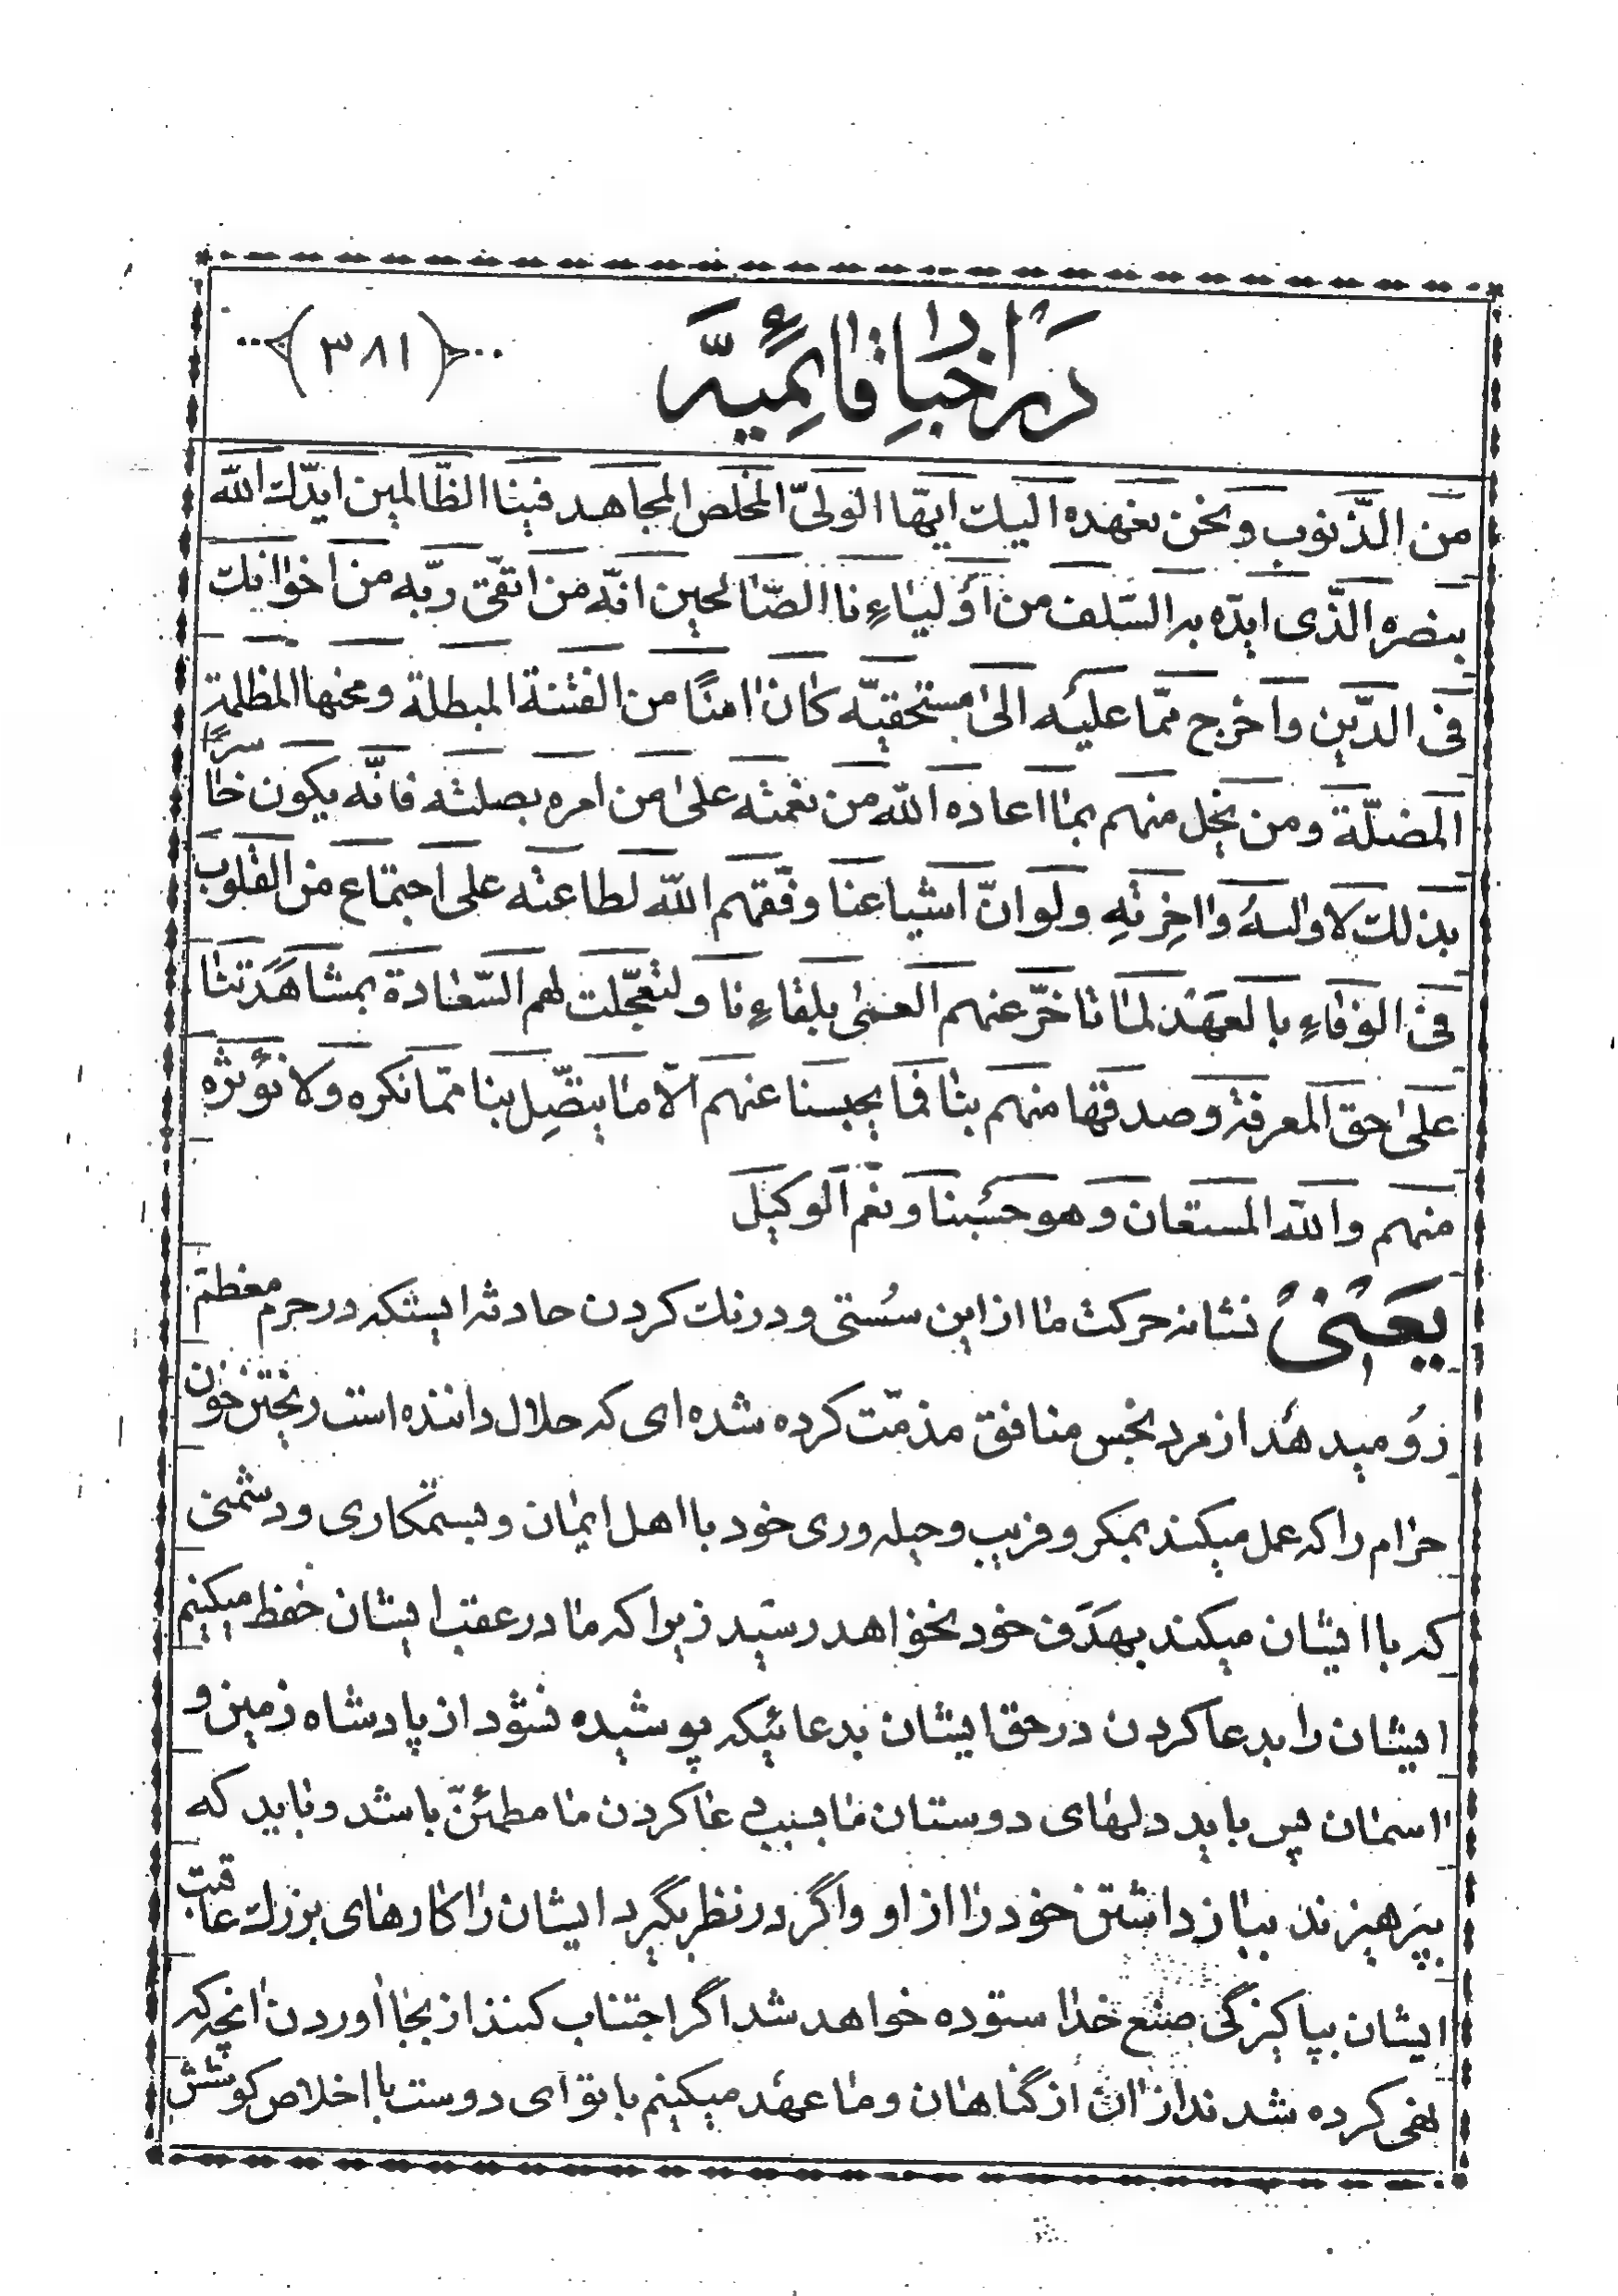 در اخبار قائمیه
(٣٨١)
من الذّنوب ونحن نعهده الیك ایّها الولیّ المخلص المجاهد فینا الظّالمین ایّدك اللّه
بنصره الّذی ایدّه به السّلف من أولیاءِنا الصّالحین انّه من اتّقی ربّه من اخوانك
فی الدّین واخرج ممّا علیه الی مستحقیّه کان امنًا من الفتنة المبطلة ومحنها المظلمة
المضلّة ومن بخل منهم بما اعاده اللّه من نعمته علی من امره بصلته فانّه یکون خاسرًا
بذلك لاولیه واخرته ولو انّ اشیاعنا وفّقهم اللّه لطاعته علی اجتماع من القلوب
فی الوفاءِ بالعهد لما تاخّر عنهم الیمنی بلقاءِنا ولتعجّلت لهم السّعادة بمشاهدتنا
علی حق المعرفة وصدقها منهم بنا فما یحبسنا عنهم الّا ما یتّصل بنا ممّا نکره ولا نؤثره
منهم واللّه المستعان وهو حسبنا ونعم الوکیل
یعنی نشانه حرکت ما از این سُستی و درنك کردن حادثه ایستکه در حرم معظم
رو میدهد از مرد نجس منافق مذمّت کرده شده ای که حلال داننده است ریختن خون
حرام را که عمل میکند بمکر و فریب و حیله وری خود با اهل ایمان و بستمکاری و دشمنی
که با ایشان میکند بهدف خود نخواهد رسید زیرا که ما در عقب ایشان حفظ میکنیم
ایشان را بدعا کردن در حق ایشان بدعائیکه پوشیده نشود از پادشاه زمین و
اسمان پس باید دلهای دوستان ما بسبب دعا کردن ما مطمئنّ باشد و باید که
بپرهیزند بباز داشتن خود را از او و اگر در نظر بگیرد ایشان را کارهای بزرك عاقبت
ایشان بپاکیزگی صنع خدا ستوده خواهد شد اگر اجتناب کنند از بجا اوردن انچه که
نهی کرده شدند از ان از گناهان و ما عهد میکنیم با تو ای دوست با اخلاص کوشش